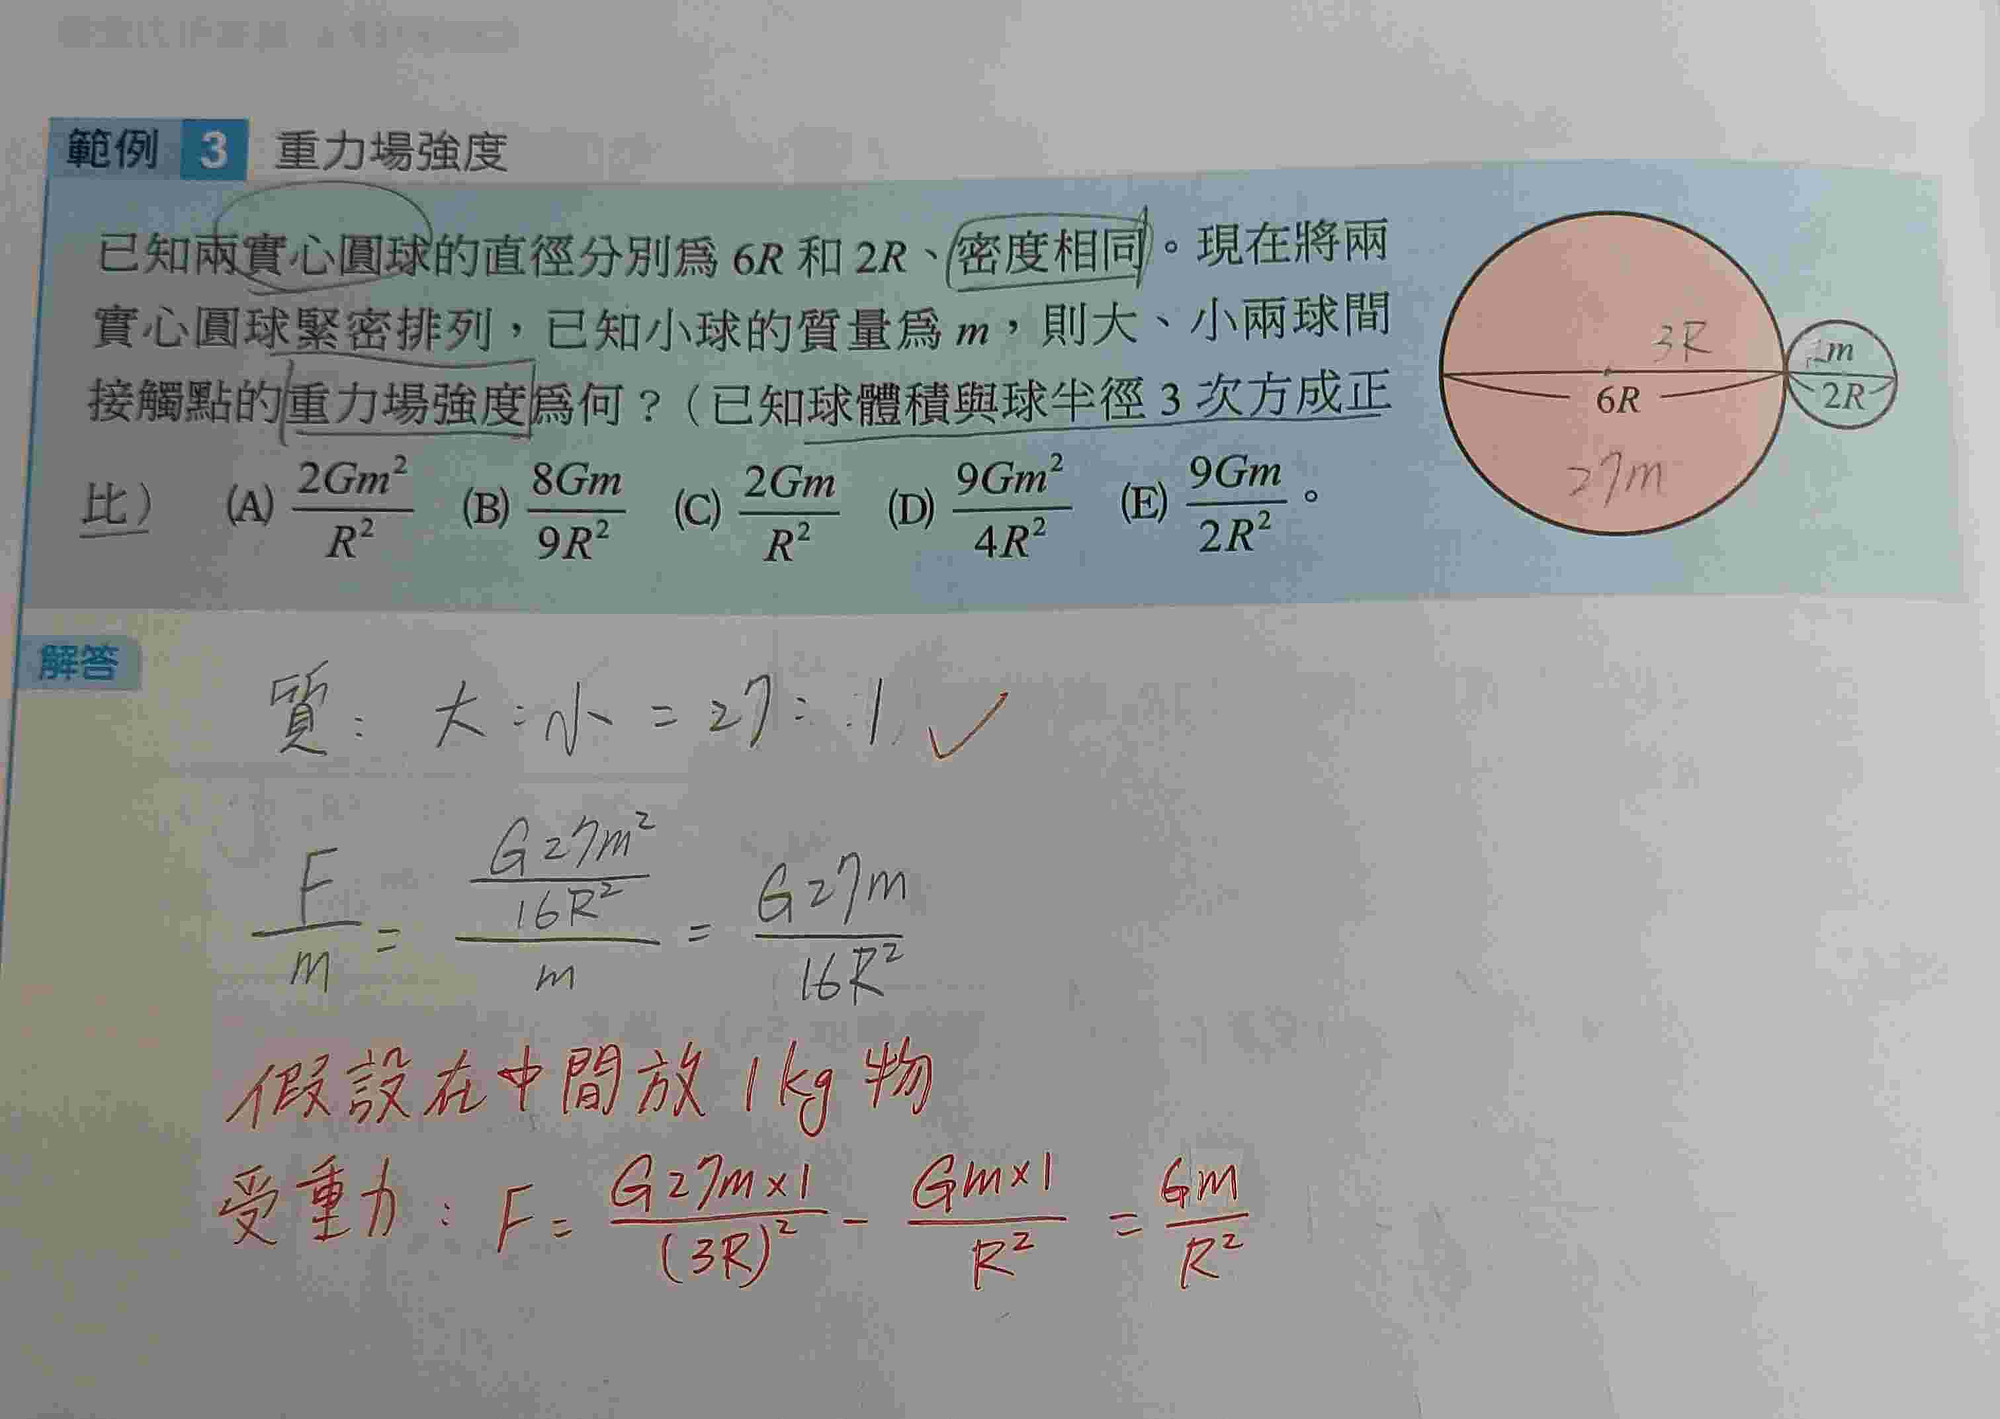 範例 3 重力場強度
已知兩實心圓球的直徑分別為 6R 和 2R、密度相同。現在將兩
實心圓球緊密排列，已知小球的質量為 m，則大、小兩球間
接觸點的重力場強度為何？（已知球體積與球半徑 3 次方成正
比） (A) 2Gm²/R² (B) 8Gm/9R² (C) 2Gm/R² (D) 9Gm²/4R² (E) 9Gm/2R²。
3R
6R
27m
m
2R
解答
質：大：小 = 27：1 ✓
F/m = (G27m²/16R²)/m = G27m/16R²
假設在中間放 1kg 物
受重力：F = G27m×1/(3R)² - Gm×1/R² = Gm/R²